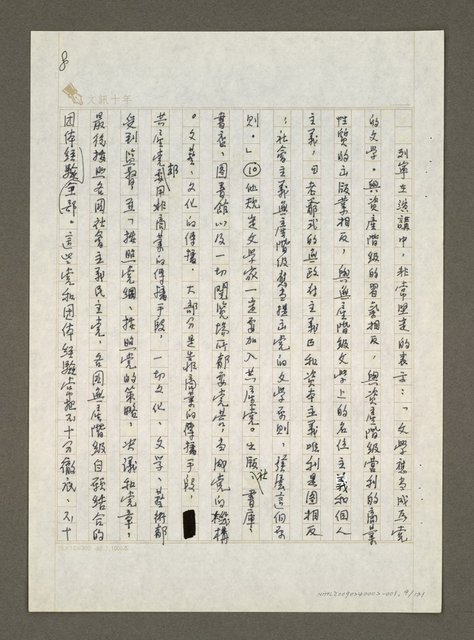 8
文訊十年
列寧在演講中，非常堅定的表示：「文學應當成為黨
的文學。與資產階級的習慣相反，與資產階級營利的商業
性質的出版業相反，與資產階級文學上的名位主義和個人
主義，老爺式的無政府主義和資本主義唯利是圖相反
，社會主義無產階級應當提出黨的文學原則，發展這個原
則。」⑩他規定文學家一定要加入共產黨。出版社、書庫、
書店、圖書館以及一切閱覽場所都要黨共。當聊黨的機構
。文藝、文化的傳播，大部分是靠商業的傳播手段，
共產黨都用非商業的傳播手段，一切文化、文學、藝術都
受到監督，並「按照黨綱、按照黨的策略，決議和黨章，
最後按照各國社會主義民主黨，各國無產階級自願結合的
團体經驗全部。這些黨和團体經驗常不十分徹底、不十
NMTL20090240002-001, 9/131